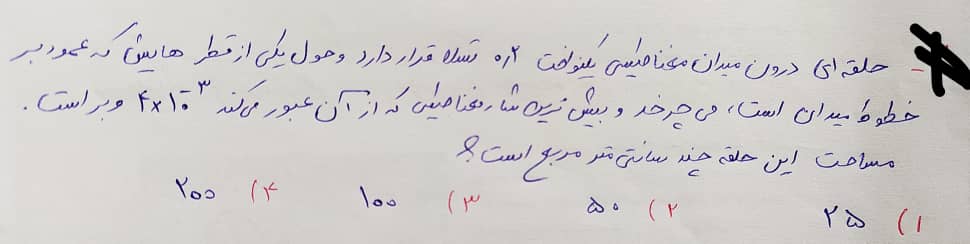 - حلقه ای درون میدان مغناطیسی یکنواخت ۰٫۲ تسلا قرار دارد و حول یکی از قطر هایش که عمود بر
خطوط میدان است، می چرخد و بیش ترین شار مغناطیسی که از آن عبور می کند ۴×۱۰⁻³ وبر است.
مساحت این حلقه چند سانتی متر مربع است؟
۱) ۲۵ ۲) ۵۰ ۳) ۱۰۰ ۴) ۲۰۰